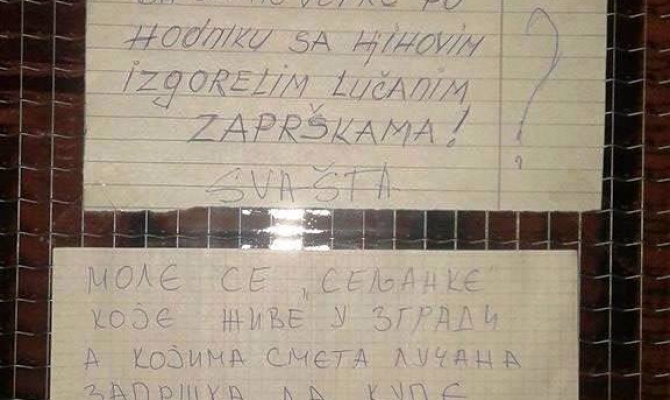 HODNIKU SA NJIHOVIM
IZGORELIM LUČANIM
ZAPRŠKAMA!
?
SVAŠTA
МОЛЕ СЕ „СЕЉАНКЕ"
КОЈЕ ЖИВЕ У ЗГРАДИ
А КОЈИМА СМЕТА ЛУЧАНА
ЗАПРШКА ДА КУПЕ